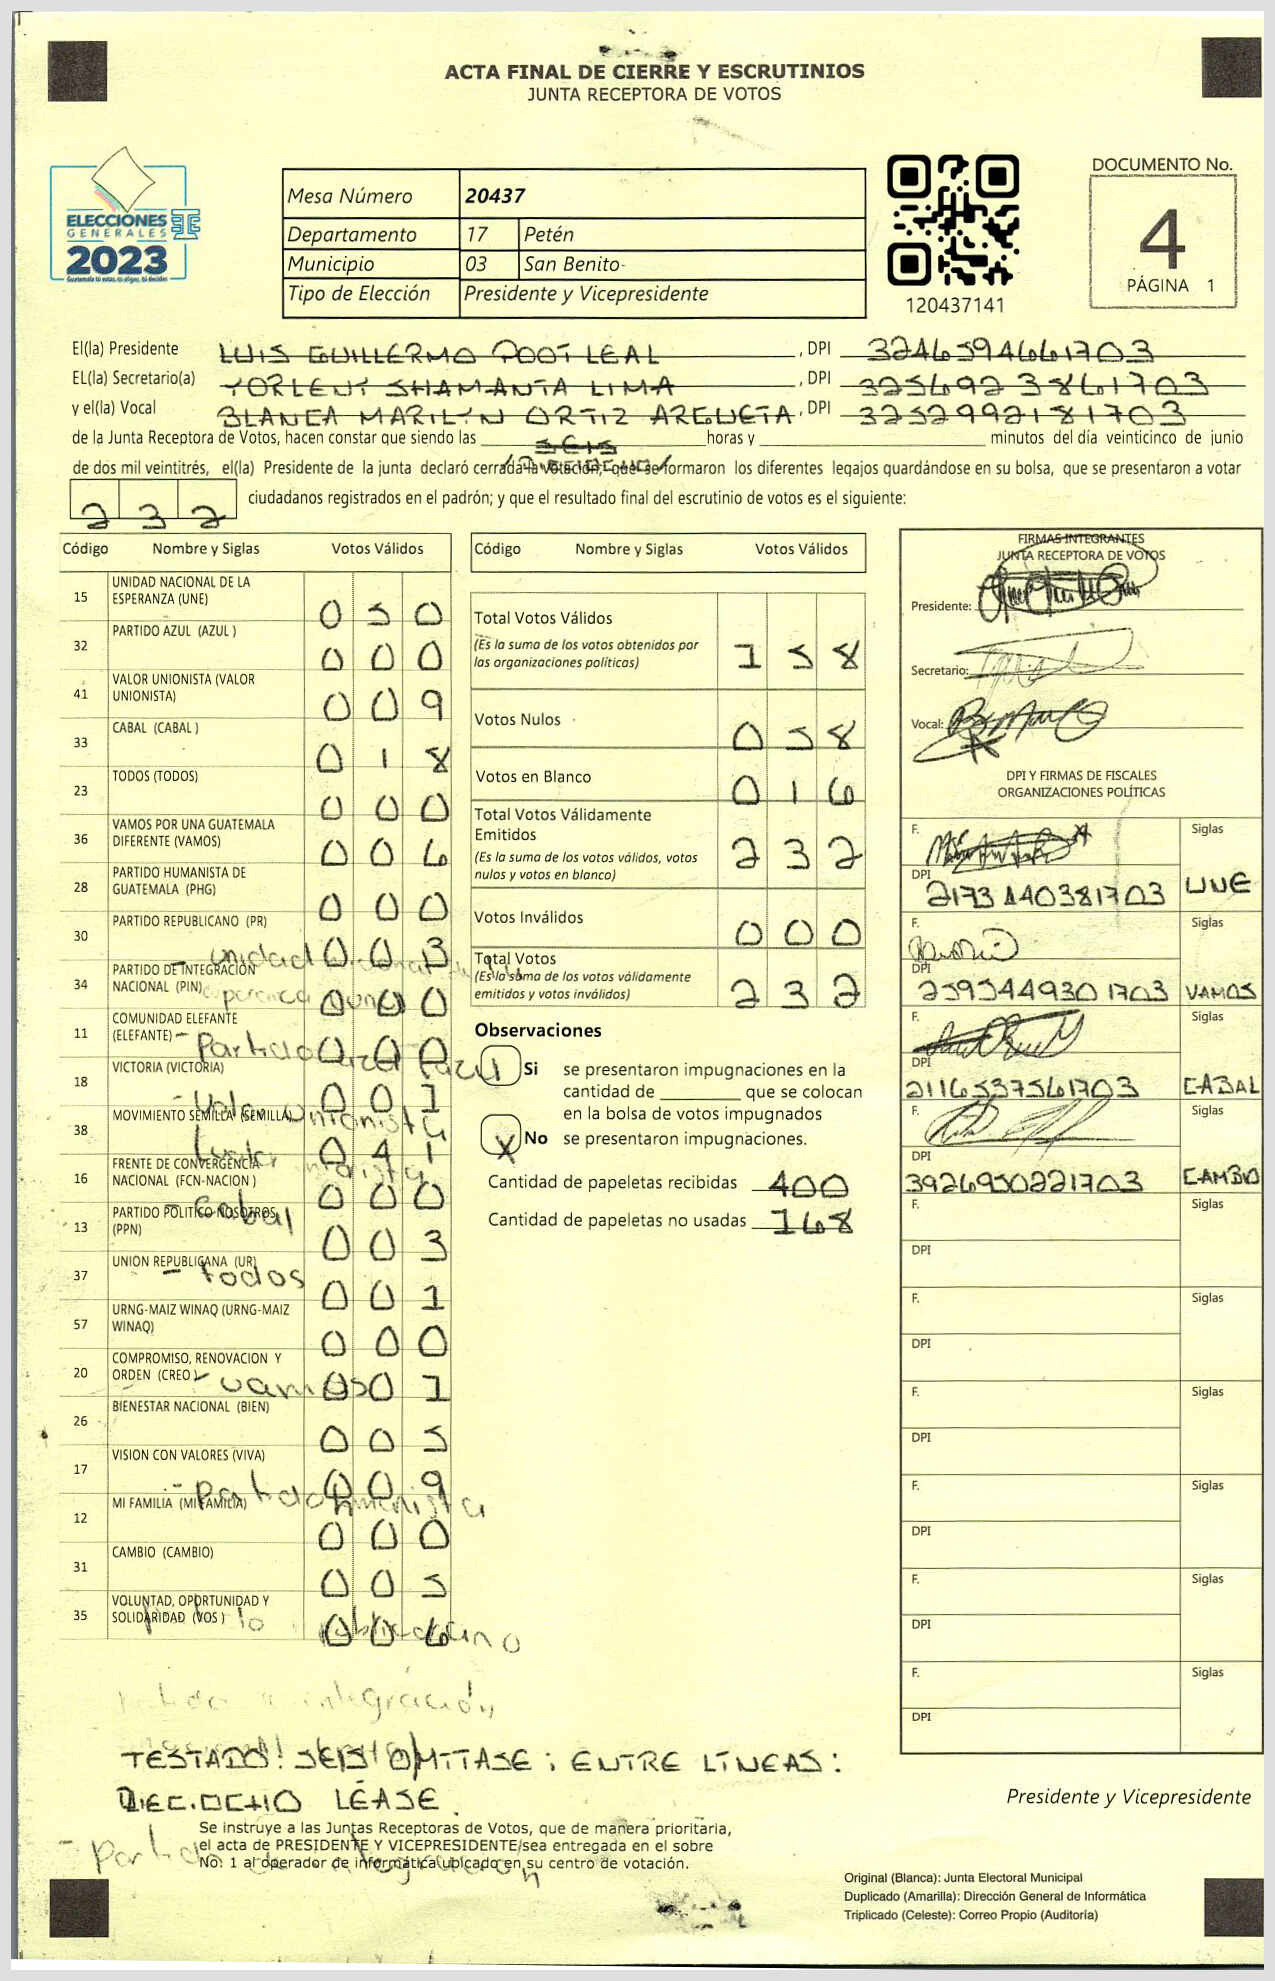 ACTA FINAL DE CIERRE Y ESCRUTINIOS
JUNTA RECEPTORA DE VOTOS
ELECCIONES
GENERALES
2023
Guatemala tú votas, tú eliges, tú decides
Mesa Número 20437
Departamento 17 Petén
Municipio 03 San Benito
Tipo de Elección Presidente y Vicepresidente
120437141
DOCUMENTO No.
4
PÁGINA 1
El(la) Presidente LUIS GUILLERMO POOT LEAL, DPI 3246594661703
EL(la) Secretario(a) YORLENY SHAMANTA LIMA, DPI 3256923861703
y el(la) Vocal BLANCA MARILYN ORTIZ ARGUETA, DPI 3252992181703
de la Junta Receptora de Votos, hacen constar que siendo las SEIS horas y minutos del día veinticinco de junio
/DIECIOCHO/
de dos mil veintitrés, el(la) Presidente de la junta declaró cerrada la votación, que se formaron los diferentes legajos quardándose en su bolsa, que se presentaron a votar
232 ciudadanos registrados en el padrón; y que el resultado final del escrutinio de votos es el siguiente:
Código Nombre y Siglas Votos Válidos
15 UNIDAD NACIONAL DE LA ESPERANZA (UNE) 050
32 PARTIDO AZUL (AZUL ) 000
41 VALOR UNIONISTA (VALOR UNIONISTA) 009
33 CABAL (CABAL ) 018
23 TODOS (TODOS) 000
36 VAMOS POR UNA GUATEMALA DIFERENTE (VAMOS) 006
28 PARTIDO HUMANISTA DE GUATEMALA (PHG) 000
30 PARTIDO REPUBLICANO (PR) 003
34 PARTIDO DE INTEGRACION NACIONAL (PIN) 000
11 COMUNIDAD ELEFANTE (ELEFANTE) 000
18 VICTORIA (VICTORIA) 001
38 MOVIMIENTO SEMILLA (SEMILLA) 041
16 FRENTE DE CONVERGENCIA NACIONAL (FCN-NACION ) 000
13 PARTIDO POLITICO NOSOTROS (PPN) 003
37 UNION REPUBLICANA (UR) 001
57 URNG-MAIZ WINAQ (URNG-MAIZ WINAQ) 000
20 COMPROMISO, RENOVACION Y ORDEN (CREO ) 001
26 BIENESTAR NACIONAL (BIEN) 005
17 VISION CON VALORES (VIVA) 009
12 MI FAMILIA (MI FAMILIA) 000
31 CAMBIO (CAMBIO) 005
35 VOLUNTAD, OPORTUNIDAD Y SOLIDARIDAD (VOS ) 006
- Unidad
- Partido
Valor Unionista
- Cabal
- Todos
- Vamos
- Partido
integración
Código Nombre y Siglas Votos Válidos
Total Votos Válidos 158
(Es la suma de los votos obtenidos por
las organizaciones políticas)
Votos Nulos 058
Votos en Blanco 016
Total Votos Válidamente
Emitidos 232
(Es la suma de los votos válidos, votos
nulos y votos en blanco)
Votos Inválidos 000
Total Votos 232
(Es la suma de los votos válidamente
emitidos y votos inválidos)
Observaciones
Si se presentaron impugnaciones en la
cantidad de que se colocan
en la bolsa de votos impugnados
X No se presentaron impugnaciones.
Cantidad de papeletas recibidas 400
Cantidad de papeletas no usadas 168
FIRMAS INTEGRANTES
JUNTA RECEPTORA DE VOTOS
Presidente:
Secretario:
Vocal:
DPI Y FIRMAS DE FISCALES
ORGANIZACIONES POLÍTICAS
F. Siglas
DPI 2173140381703 UNE
F. Siglas
DPI 2595449301703 VAMOS
F. Siglas
DPI 2116537561703 CABAL
F. Siglas
DPI 3926950221703 CAMBIO
F. Siglas
DPI
F. Siglas
DPI
F. Siglas
DPI
F. Siglas
DPI
F. Siglas
DPI
F. Siglas
DPI
TESTADO: SEIS OMITASE; ENTRE LÍNEAS:
DIECIOCHO LÉASE.
Presidente y Vicepresidente
Se instruye a las Juntas Receptoras de Votos, que de manera prioritaria,
el acta de PRESIDENTE Y VICEPRESIDENTE sea entregada en el sobre
No. 1 al operador de informática ubicado en su centro de votación.
- Partido de integración
Original (Blanca): Junta Electoral Municipal
Duplicado (Amarilla): Dirección General de Informática
Triplicado (Celeste): Correo Propio (Auditoría)